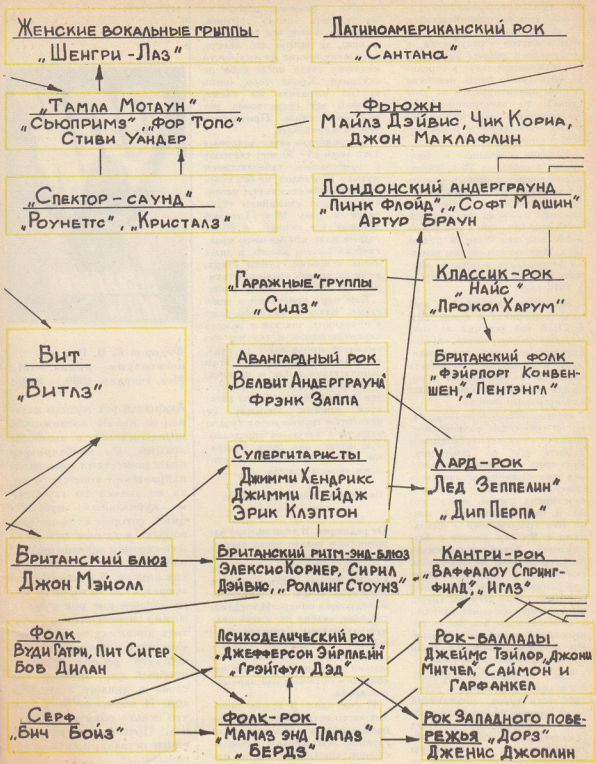 Женские вокальные группы
„Шенгри-Лаз"
Латиноамериканский рок
„Сантана"
„Тамла Мотаун"
„Сьюпримз", „Фор Топс"
Стиви Уандер
Фьюжн
Майлз Дэйвис, Чик Кориа,
Джон Маклафлин
„Спектор-саунд"
„Роунеттс", „Кристалз"
Лондонский андерграунд
„Пинк Флойд", „Софт Машин"
Артур Браун
„Гаражные" группы
„Сидз"
Классик-рок
„Найс"
„Прокол Харум"
Бит
„Битлз"
Авангардный рок
„Велвит Андерграунд"
Фрэнк Заппа
Британский фолк
„Фэйрпорт Конвен-
шен", „Пентэнгл"
Супергитаристы
Джимми Хендрикс
Джимми Пейдж
Эрик Клэптон
Хард-рок
„Лед Зеппелин"
„Дип Перпл"
Британский блюз
Джон Мэйолл
Британский ритм-энд-блюз
Элексис Корнер, Сирил
Дэйвис, „Роллинг Стоунз"
Кантри-рок
„Баффалоу Спринг-
филд", „Иглз"
Фолк
Вуди Гатри, Пит Сигер
Боб Дилан
Психоделический рок
„Джефферсон Эйрплейн"
„Грэйтфул Дэд"
Рок-баллады
Джеймс Тэйлор, „Джони
Митчел", Саймон и
Гарфанкел
Серф
„Бич Бойз"
Фолк-рок
„Мамаз энд Папаз"
„Бердз"
Рок Западного побе-
режья „Дорз"
Дженис Джоплин